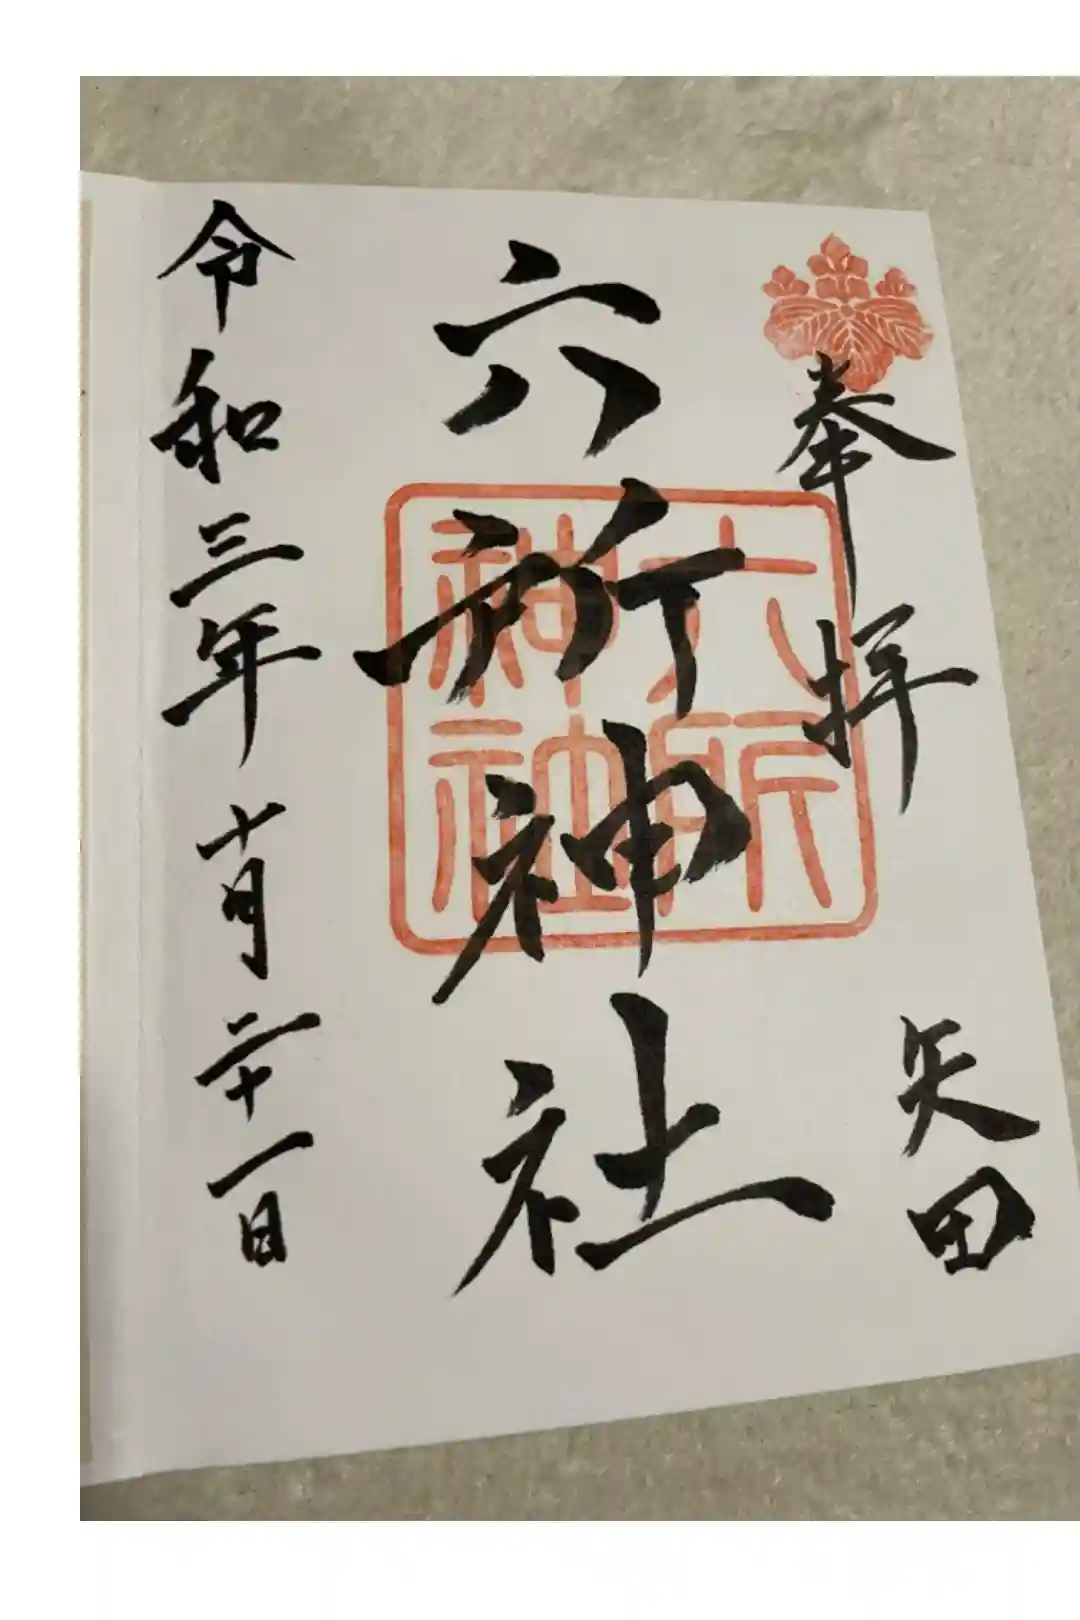 奉拝
矢田
六所神社
六所
神社
令和三年十月二十一日